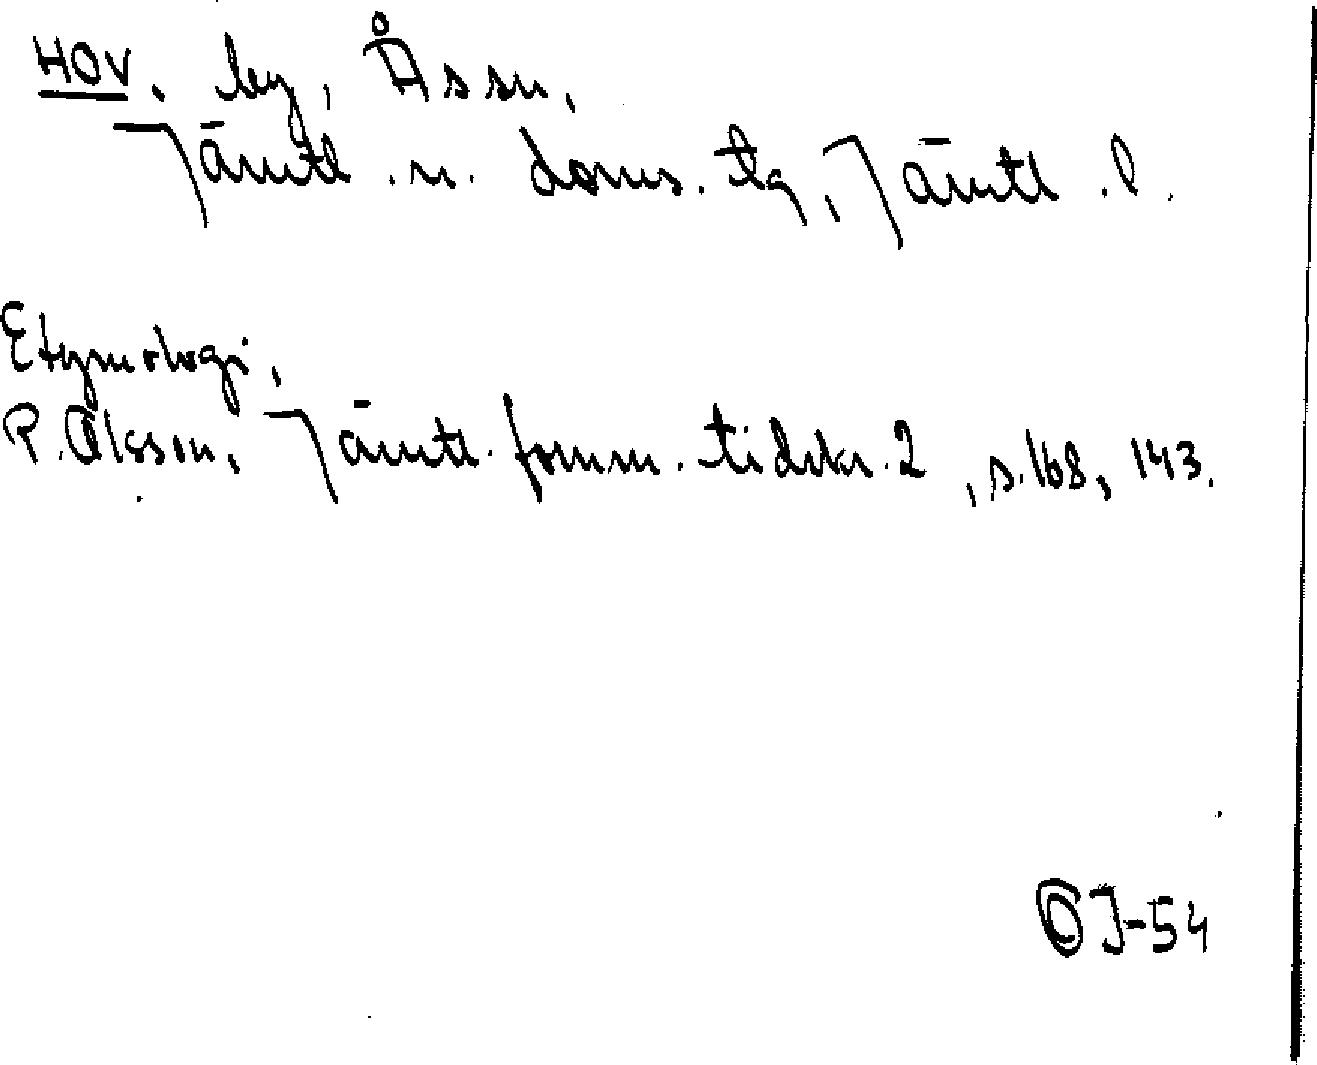 HOV. by, Ås sn,
Jämtl. n. doms. tg, Jämtl. l.
Etymologi,
P. Olsson, Jämtl. fornm. tidskr. 2, s. 168, 143.
OJ-54